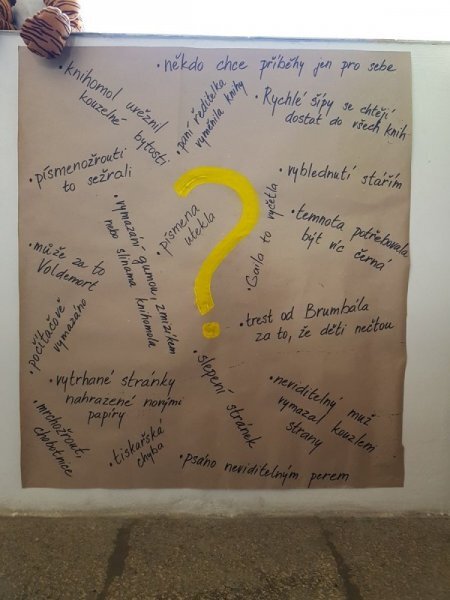 • knihomol uvěznil
kouzelné bytosti
• někdo chce příběhy jen pro sebe
• paní ředitelka
vyměnila knihy
• Rychlé šípy se chtějí
dostat do všech knih
• písmenožrouti
to sežrali
• vymazání gumou, zmizíkem
nebo slinama knihomola
• písmena
utekla
?
• Gaila to vyčetla
• vyblednutí stářím
• temnota potřebovala
být víc černá
• může za to
Voldemort
• počítačově
vymazáno
• trest od Brumbála
za to, že děti nečtou
• vytrhané stránky
nahrazené novými
papíry
• slepení stránek
• neviditelný muž
vymazal kouzlem
strany
• mrchožrouti,
chobotnice
• tiskařská
chyba
• psáno neviditelným perem